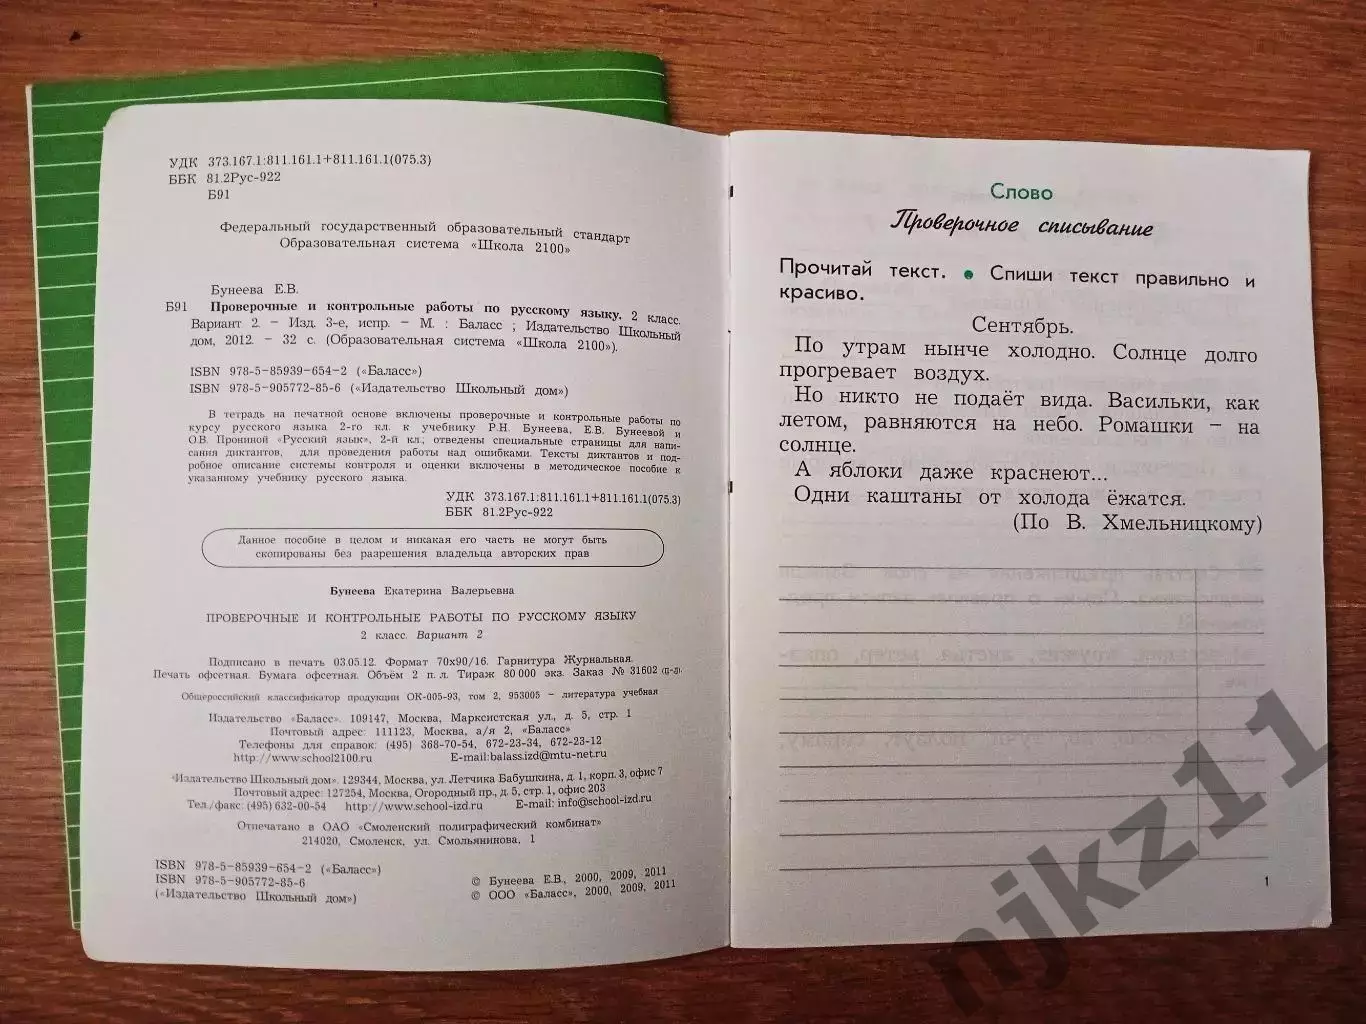 УДК 373.167.1:811.161.1+811.161.1(075.3)
ББК 81.2Рус-922
Б91
Федеральный государственный образовательный стандарт
Образовательная система «Школа 2100»
Бунеева Е.В.
Б91 Проверочные и контрольные работы по русскому языку. 2 класс.
Вариант 2. – Изд. 3-е, испр. – М. : Баласс ; Издательство Школьный
дом, 2012. – 32 с. (Образовательная система «Школа 2100»).
ISBN 978-5-85939-654-2 («Баласс»)
ISBN 978-5-905772-85-6 («Издательство Школьный дом»)
В тетрадь на печатной основе включены проверочные и контрольные работы по
курсу русского языка 2-го кл. к учебнику Р.Н. Бунеева, Е.В. Бунеевой и
О.В. Прониной «Русский язык», 2-й кл.; отведены специальные страницы для напи-
сания диктантов, для проведения работы над ошибками. Тексты диктантов и под-
робное описание системы контроля и оценки включены в методическое пособие к
указанному учебнику русского языка.
УДК 373.167.1:811.161.1+811.161.1(075.3)
ББК 81.2Рус-922
Данное пособие в целом и никакая его часть не могут быть
скопированы без разрешения владельца авторских прав
Бунеева Екатерина Валерьевна
ПРОВЕРОЧНЫЕ И КОНТРОЛЬНЫЕ РАБОТЫ ПО РУССКОМУ ЯЗЫКУ
2 класс. Вариант 2
Подписано в печать 03.05.12. Формат 70х90/16. Гарнитура Журнальная.
Печать офсетная. Бумага офсетная. Объём 2 п.л. Тираж 80 000 экз. Заказ № 31602 (п-л).
Общероссийский классификатор продукции ОК-005-93, том 2, 953005 – литература учебная
Издательство «Баласс». 109147, Москва, Марксистская ул., д. 5, стр. 1
Почтовый адрес: 111123, Москва, а/я 2, «Баласс»
Телефоны для справок: (495) 368-70-54, 672-23-34, 672-23-12
http://www.school2100.ru E-mail:balass.izd@mtu-net.ru
«Издательство Школьный дом». 129344, Москва, ул. Летчика Бабушкина, д. 1, корп. 3, офис 7
Почтовый адрес: 127254, Москва, Огородный пр., д. 5, стр. 1, офис 203
Тел./факс: (495) 632-00-54 http://www.school-izd.ru E-mail: info@school-izd.ru
Отпечатано в ОАО «Смоленский полиграфический комбинат»
214020, Смоленск, ул. Смольянинова, 1
ISBN 978-5-85939-654-2 («Баласс»)
ISBN 978-5-905772-85-6
(«Издательство Школьный дом»)
© Бунеева Е.В., 2000, 2009, 2011
© ООО «Баласс», 2000, 2009, 2011
Слово
Проверочное списывание
Прочитай текст. • Спиши текст правильно и
красиво.
Сентябрь.
По утрам нынче холодно. Солнце долго
прогревает воздух.
Но никто не подаёт вида. Васильки, как
летом, равняются на небо. Ромашки – на
солнце.
А яблоки даже краснеют...
Одни каштаны от холода ёжатся.
(По В. Хмельницкому)
1
njkz11